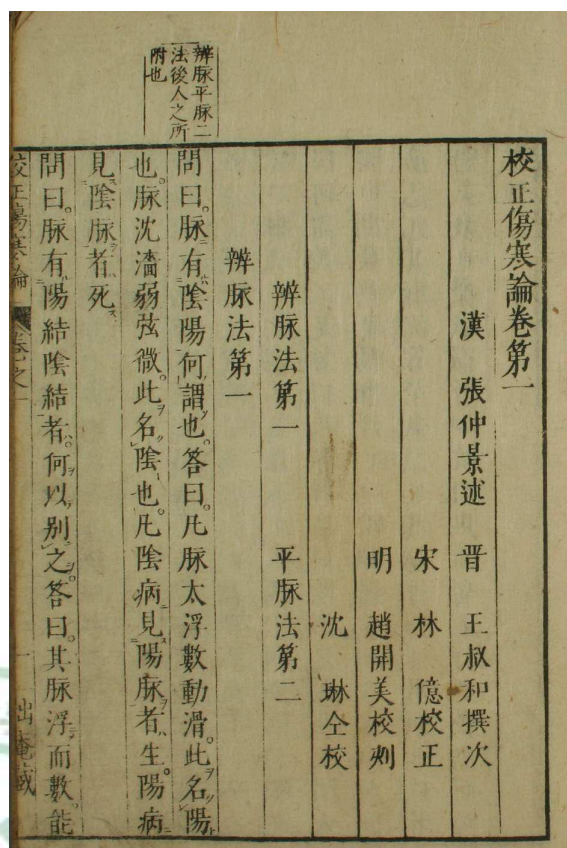 校正傷寒論卷第一
漢 張仲景述 晋 王叔和撰次
宋 林 億校正
明 趙開美校刻
沈 琳仝校
辨脉法第一 平脉法第二
辨脉法第一
問曰。脉有陰陽何謂也。答曰。凡脉太浮數動滑。此名陽
也。脉沈濇弱弦微。此名陰也。凡陰病見陽脉者生。陽病
見陰脉者死
問曰。脉有陽結陰結者。何以别之。答曰。其脉浮而數。能
辨脉平脉二
法後人之所
附也
校正傷寒論 卷之一 一